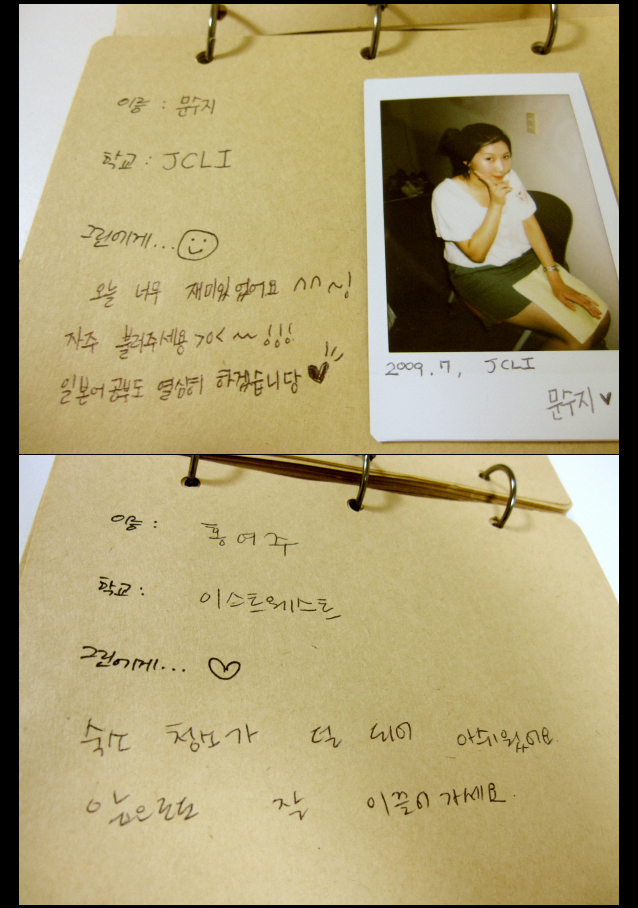 이름 : 문수지
학교 : JCLI
그린에게...
오늘 너무 재미있었어요 ^^~!
자주 불러주세용 >0< ~~!!!
일본어공부도 열심히 하겠습니당 ♥
2009.7, JCLI
문수지 ♥
이름 : 홍여주
학교 : 이스트웨스트
그린에게... ♡
숙소 청소가 덜 되어 아쉬웠어요.
앞으로도 잘 이끌어가세요.